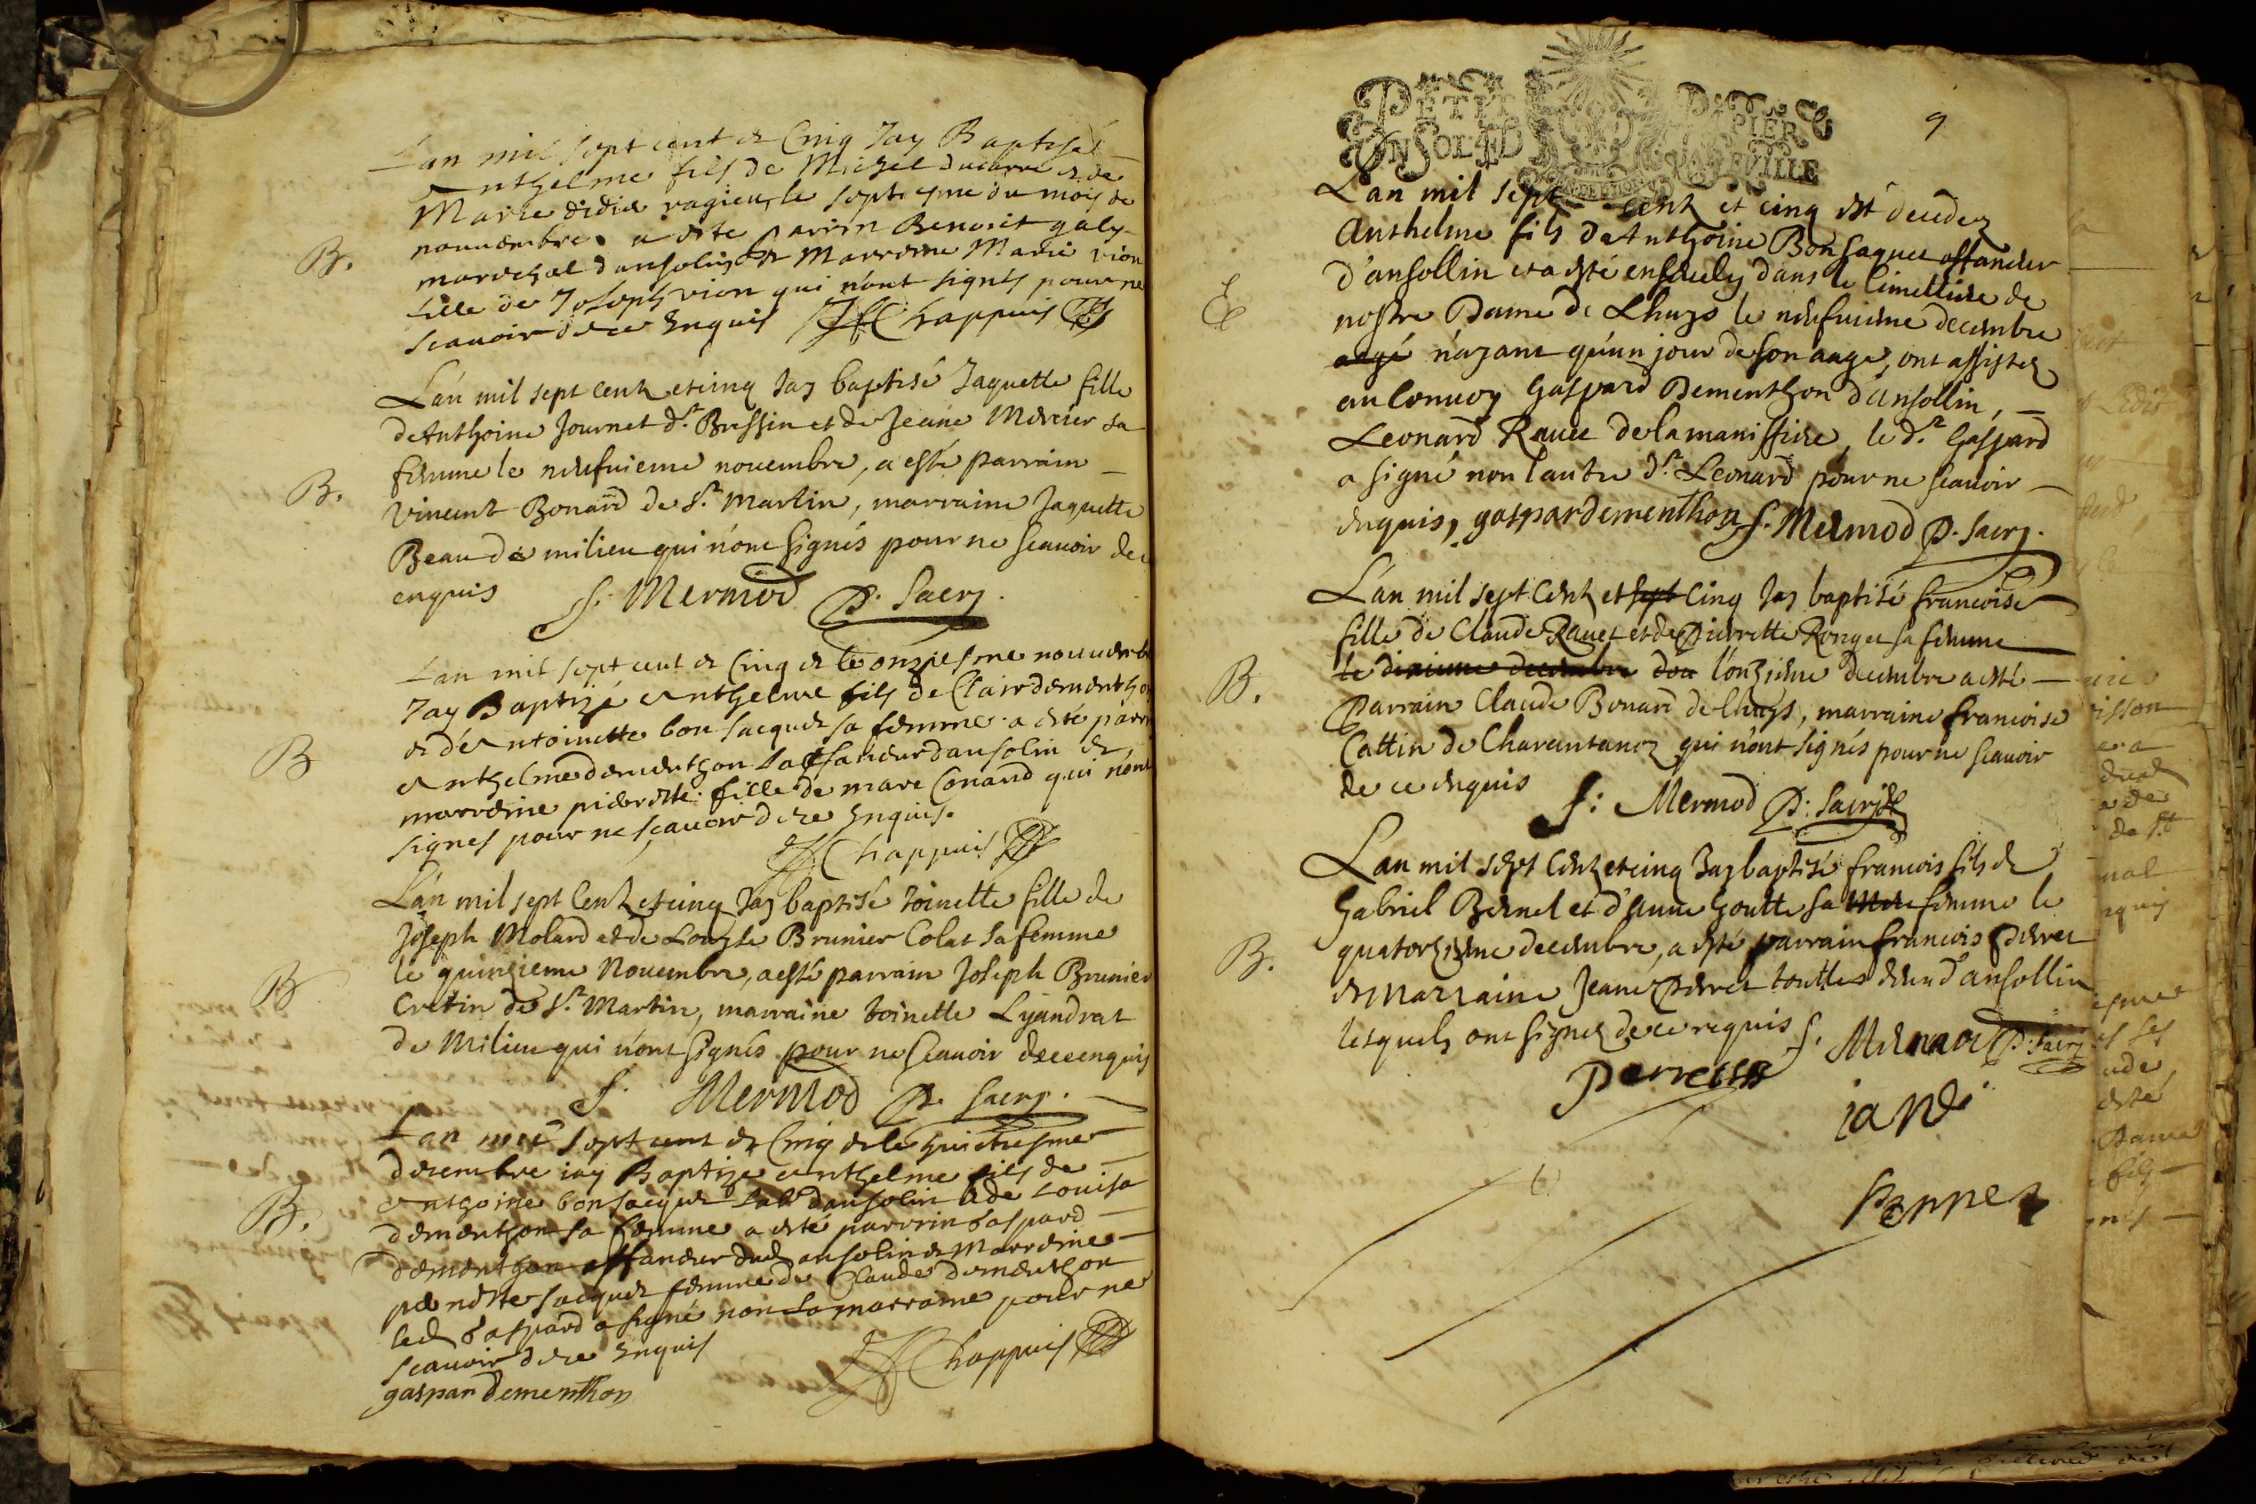 Lan mil sept cent et Cinq Jay Baptisé
Anthelme fils de Michel ducarre et de
Marie didier ragieu, le septiesme du mois de
nouuembre a esté Parrin Benoist galy
mareschal dansolin et Marreine Marie vion
fille de Joseph vion qui n'ont signés pour ne
B.
scauoir de ce Enquis Chappuis
L'an mil sept Cent et cinq Jay baptisé Jaquette fille
de Anthoine Journet d.t Bressin et de Jeane Mercier sa
femme le neufuieme nouembre, a esté parrain
vincent Bonard de S.t Martin, marraine Jaquette
B.
Beau de milieu qui n'ont signés pour ne scauoir de ce
enquis f. Mermod P. Sacr.
Lan mil sept cent et Cinq et le onziesme nouuembre
Jay Baptizé Anthelme fils de Clair dementhon
et d'Antoinette bon Jacquet sa femme a esté parrin
B
Anthelme dementhon laffaneur dansolin et
marreine pierrette fille de marc Conand qui n'ont
signes pour ne scauoir de ce Enquis.
Chappuis
L'an mil sept Cent et cinq Jay baptisé toinette fille de
Joseph Molard et de Louyse Brunier Colat sa femme
le quinzieme Nouembre, a esté parrain Joseph Brunier
B
Cretin de S.t Martin, marraine toinette Lyandrat
de Milieu qui n'ont signés pour ne scauoir de ce enquis
f. Mermod P. Sacr.
Lan mil sept cent et Cinq et le huictiesme
decembre iay Baptize Anthelme fils de
Anthoine bon Jacquet lab.r dansolin et de Louisa
B.
dementhon sa femme a esté parrin Gaspard
dementhon affaneur dud ansolin et Marreine
pernette Jacquet femme de Claude dementhon
led Gaspard a signé non la marraine pour ne
scauoir de ce Enquis Chappuis
gaspar dementhon
PETIT PAPIER
UN SOL 4 D LA FEUILLE
9
L'an mil sept cent et cinq est decedez
Anthelme fils de Anthoine Bon Jaquet affaneur
d'ansollin et a esté enseuely dans le Cimettiere de
nostre Dame de Lhuys le neufuieme decembre
aagé n'ayant qu'un jour de son aage, ont assistez
au Conuoy Gaspard Dementhon d'ansollin,
Leonard Rauet de la manissiere, le d.t Gaspard
a signé non l'autre d.t Leonard pour ne scauoir
enquis, gaspar dementhon f. Mermod P. Sacr.
L'an mil sept Cent et sept Cinq Jay baptisé francoise
fille de Claude Rauet et de Pierrette Ronget sa femme
B.
le dixieme decembre dou l'onzieme decembre a esté
Parrain Claude Bonard de Lhuys, marraine francoise
Cattin de Charantanoz qui n'ont signés pour ne scauoir
de ce enquis f: Mermod P: Sacr
Lan mil sept Cent et cinq Jay baptisé francois fils de
Gabriel Bernel et d'Anne Goutte sa Mere femme le
B.
quatorzieme decembre, a esté parrain francois Perret
et Marraine Jeane Perret touttes deux d'ansollin
lesquels ont signez de ce requis f. Mermod P: Sacr
Perret
iane
Perret